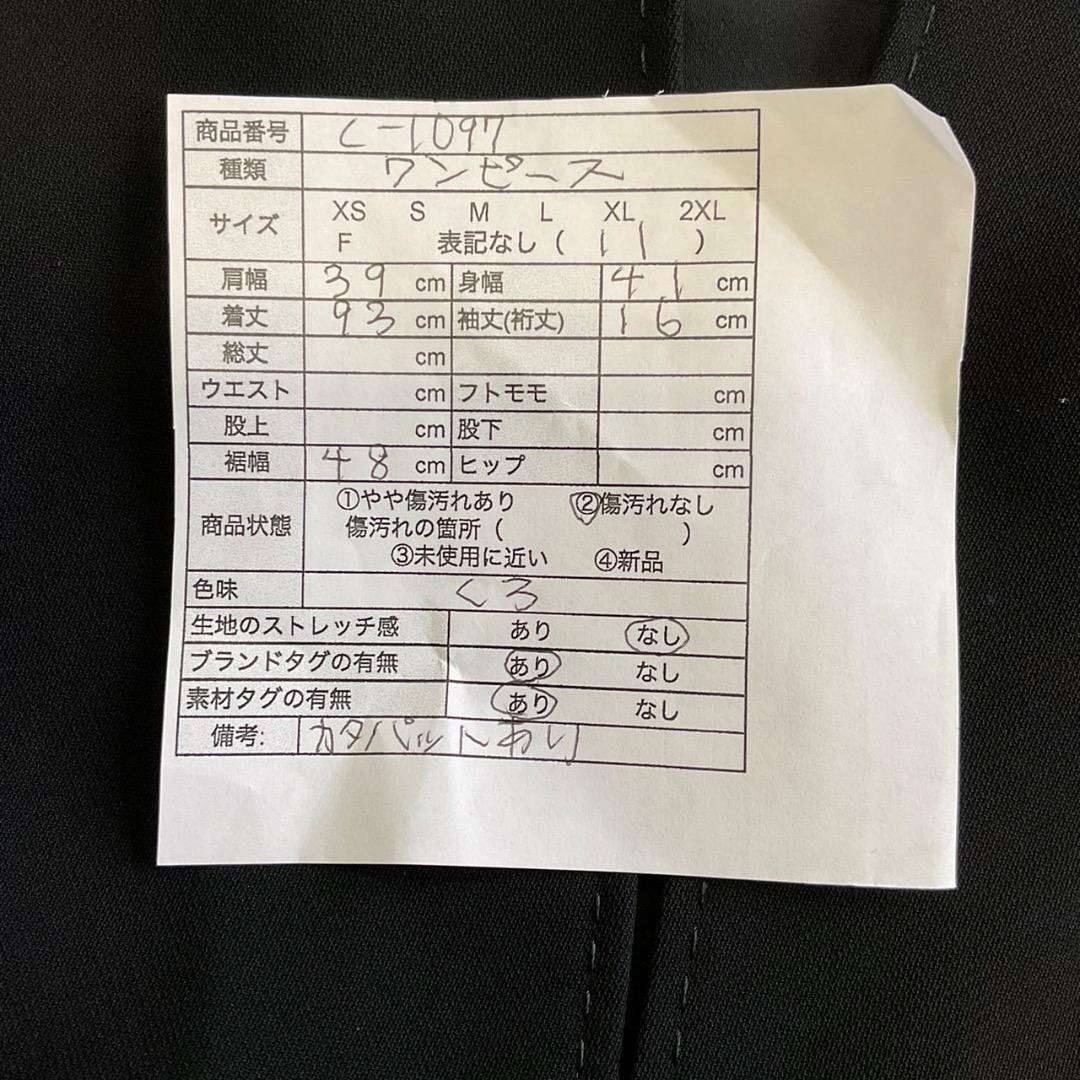 商品番号 C-1097
種類 ワンピース
サイズ XS S M L XL 2XL
F 表記なし ( 11 )
肩幅 39 cm 身幅 41 cm
着丈 93 cm 袖丈(裄丈) 16 cm
総丈 cm
ウエスト cm フトモモ cm
股上 cm 股下 cm
裾幅 48 cm ヒップ cm
商品状態 ①やや傷汚れあり ②傷汚れなし
傷汚れの箇所 ( )
③未使用に近い ④新品
色味 くろ
生地のストレッチ感 あり なし
ブランドタグの有無 あり なし
素材タグの有無 あり なし
備考: カタパットあり